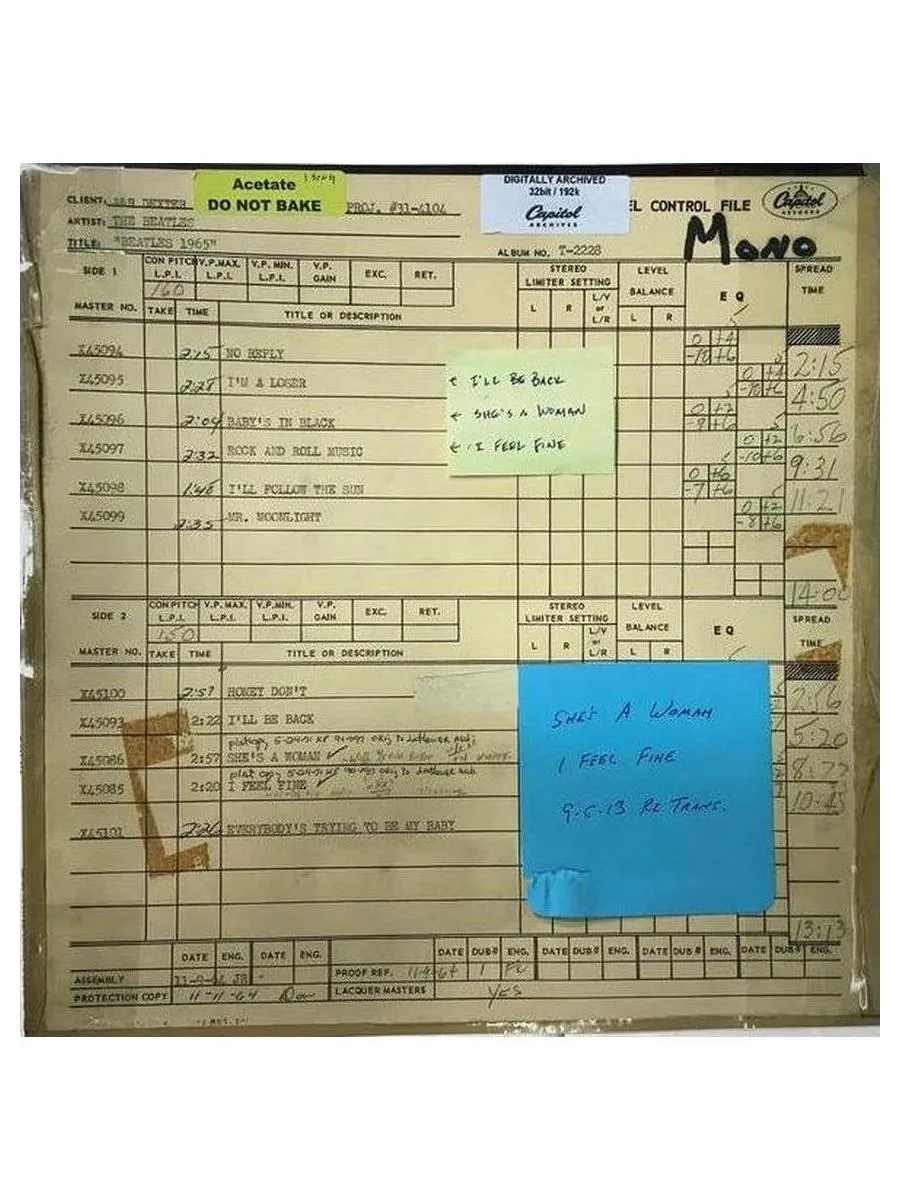 Acetate
DO NOT BAKE
DIGITALLY ARCHIVED
32bit / 192k
Capitol
ARCHIVES
CLIENT: DEXTER PROJ. #31-4104
EL CONTROL FILE
Capitol
RECORDS
ARTIST: THE BEATLES
MONO
TITLE: "BEATLES 1965" ALBUM NO. T-2228
SIDE 1 CON PITCH L.P.I. V.P. MAX. L.P.I. V.P. MIN. L.P.I. V.P. GAIN EXC. RET. STEREO LIMITER SETTING LEVEL BALANCE EQ SPREAD TIME
160 L R L/V or L/R L R
MASTER NO. TAKE TIME TITLE OR DESCRIPTION
X45094 2:15 NO REPLY 0 +4 -10 +6 2:15
X45095 2:28 I'M A LOSER 0 +4 -10 +6 4:50
X45096 2:04 BABY'S IN BLACK 0 +2 -9 +6 6:56
X45097 2:32 ROCK AND ROLL MUSIC 0 +2 -10 +6 9:31
X45098 1:48 I'LL FOLLOW THE SUN 0 +6 -7 +6 11:21
X45099 2:35 MR. MOONLIGHT 0 +2 -8 +6
14:00
← I'LL BE BACK
← SHE'S A WOMAN
← I FEEL FINE
SIDE 2 CON PITCH L.P.I. V.P. MAX. L.P.I. V.P. MIN. L.P.I. V.P. GAIN EXC. RET. STEREO LIMITER SETTING LEVEL BALANCE EQ SPREAD TIME
150 L R L/V or L/R L R
MASTER NO. TAKE TIME TITLE OR DESCRIPTION
X45100 2:57 HONEY DON'T 2:56
X45093 2:22 I'LL BE BACK 5:20
X45086 2:57 SHE'S A WOMAN ✓
X45085 2:20 I FEEL FINE ✓ 10:45
X45101 2:20 EVERYBODY'S TRYING TO BE MY BABY
13:13
SHE'S A WOMAN
I FEEL FINE
9-6-13 RE TRANS.
DATE ENG. DATE ENG. DATE DUB# ENG. DATE DUB# ENG. DATE DUB# ENG. DATE DUB# ENG.
ASSEMBLY 11-9-64 JR PROOF REF. 11-9-64 1
PROTECTION COPY 11-11-64 LACQUER MASTERS YES